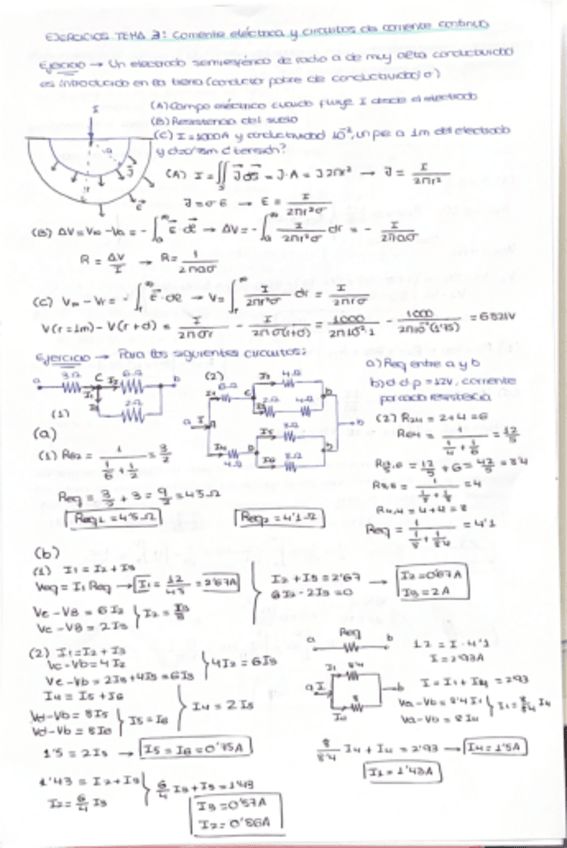 EJERCICIOS TEMA 3: Corriente eléctrica y circuitos de corriente continua
Ejercicio → Un electrodo semiesférico de radio a de muy alta conductividad
es introducido en la tierra (conductor pobre de conductividad σ)
(A) Campo eléctrico cuando fluye I desde el electrodo
(B) Resistencia del suelo
(C) I = 1000A y conductividad 10⁻², un pie a 1m del electrodo
y d=0'75m ¿tensión?
(A) I = ∬ J⃗ dS⃗ = J·A = J2πr² → J = I/2πr²
J = σE → E = I/2πr²σ
(B) ΔV = V∞ - Va = - ∫ E⃗ dl⃗ → ΔV = - ∫ I/2πr²σ dr = - I/2πaσ
R = ΔV/I → R = 1/2πaσ
(C) V∞ - Vr = - ∫ E⃗·dl → V = ∫ I/2πr²σ dr = I/2πrσ
V(r=1m) - V(r+d) = I/2πσr - I/2πσ(r+d) = 1000/2π10⁻²·1 - 1000/2π10⁻²(1'75) = 6821V
Ejercicio → Para los siguientes circuitos:
a) Req entre a y b
b) d d p = 12V, corriente
por cada resistencia
(1)
(2)
(a)
(1) R62 = 1/(1/6 + 1/2) = 3/2
Req = 3/2 + 3 = 9/2 = 4'5Ω
Req1 = 4'5Ω
Req2 = 4'1Ω
(2) R24 = 2+4 = 6
R64 = 1/(1/4 + 1/6) = 12/5
= 12/5 + 6 = 42/5 = 8'4
R8,8 = 1/(1/8 + 1/8) = 4
R4,4 = 4+4 = 8
Req = 1/(1/8 + 1/8'4) = 4'1
(b)
(1) I1 = I2 + I3
Veq = I1 Req → I1 = 12/4'5 = 2'67A
Vc - VB = 6I2
Vc - VB = 2I3
I2 = I3/3
I2 + I3 = 2'67
6I2 - 2I3 = 0
I2 = 0'67A
I3 = 2A
(2) I1 = I2 + I3
Vc - Vb = 4I2
Vc - Vb = 2I3 + 4I3 = 6I3
4I2 = 6I3
I4 = I5 + I6
Vd - Vb = 8I5
Vd - Vb = 8I6
I5 = I6
I4 = 2I5
1'5 = 2I5 → I5 = I6 = 0'75A
1'43 = I2 + I3
I2 = 6/4 I3
6/4 I3 + I3 = 1'43
I3 = 0'57A
I2 = 0'86A
a Req b
12 = I·4'1
I = 2'93A
I = I1 + I4 = 2'93
Va - Vb = 8'4 I1
Va - Vb = 8 I4
I1 = 8/8'4 I4
8/8'4 I4 + I4 = 2'93 → I4 = 1'5A
I1 = 1'43A